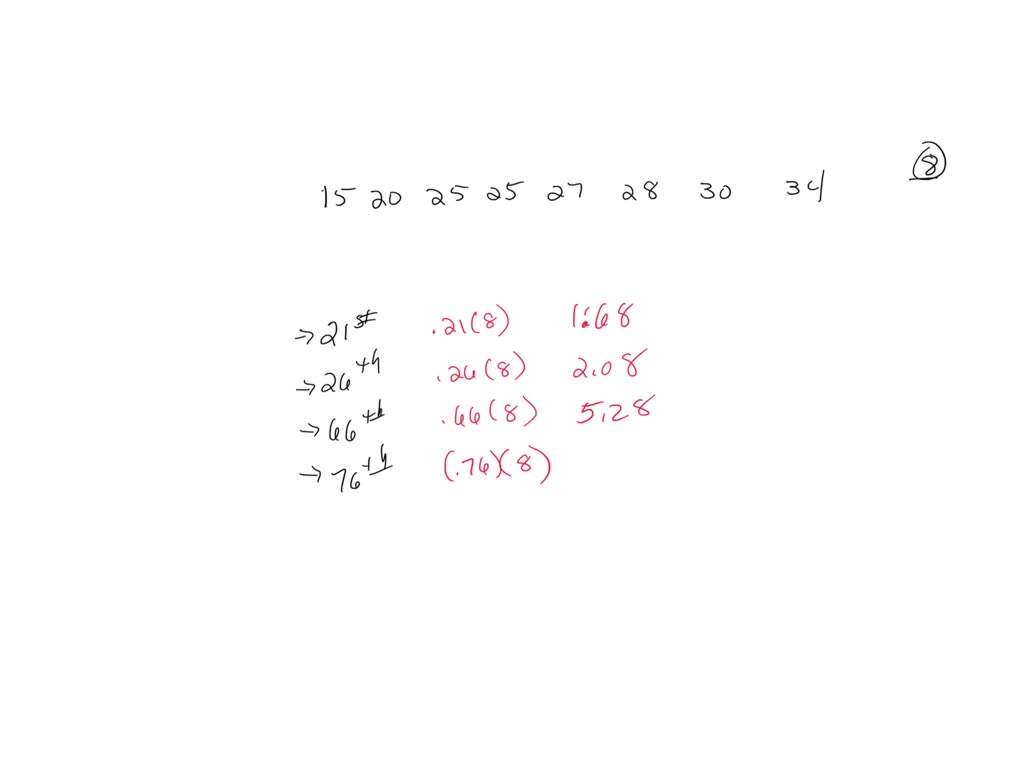 8
15 20 25 25 27 28 30 34
→ 21st .21(8) 1.68
→ 26th .26(8) 2.08
→ 66th .66(8) 5.28
→ 76th (.76)(8)